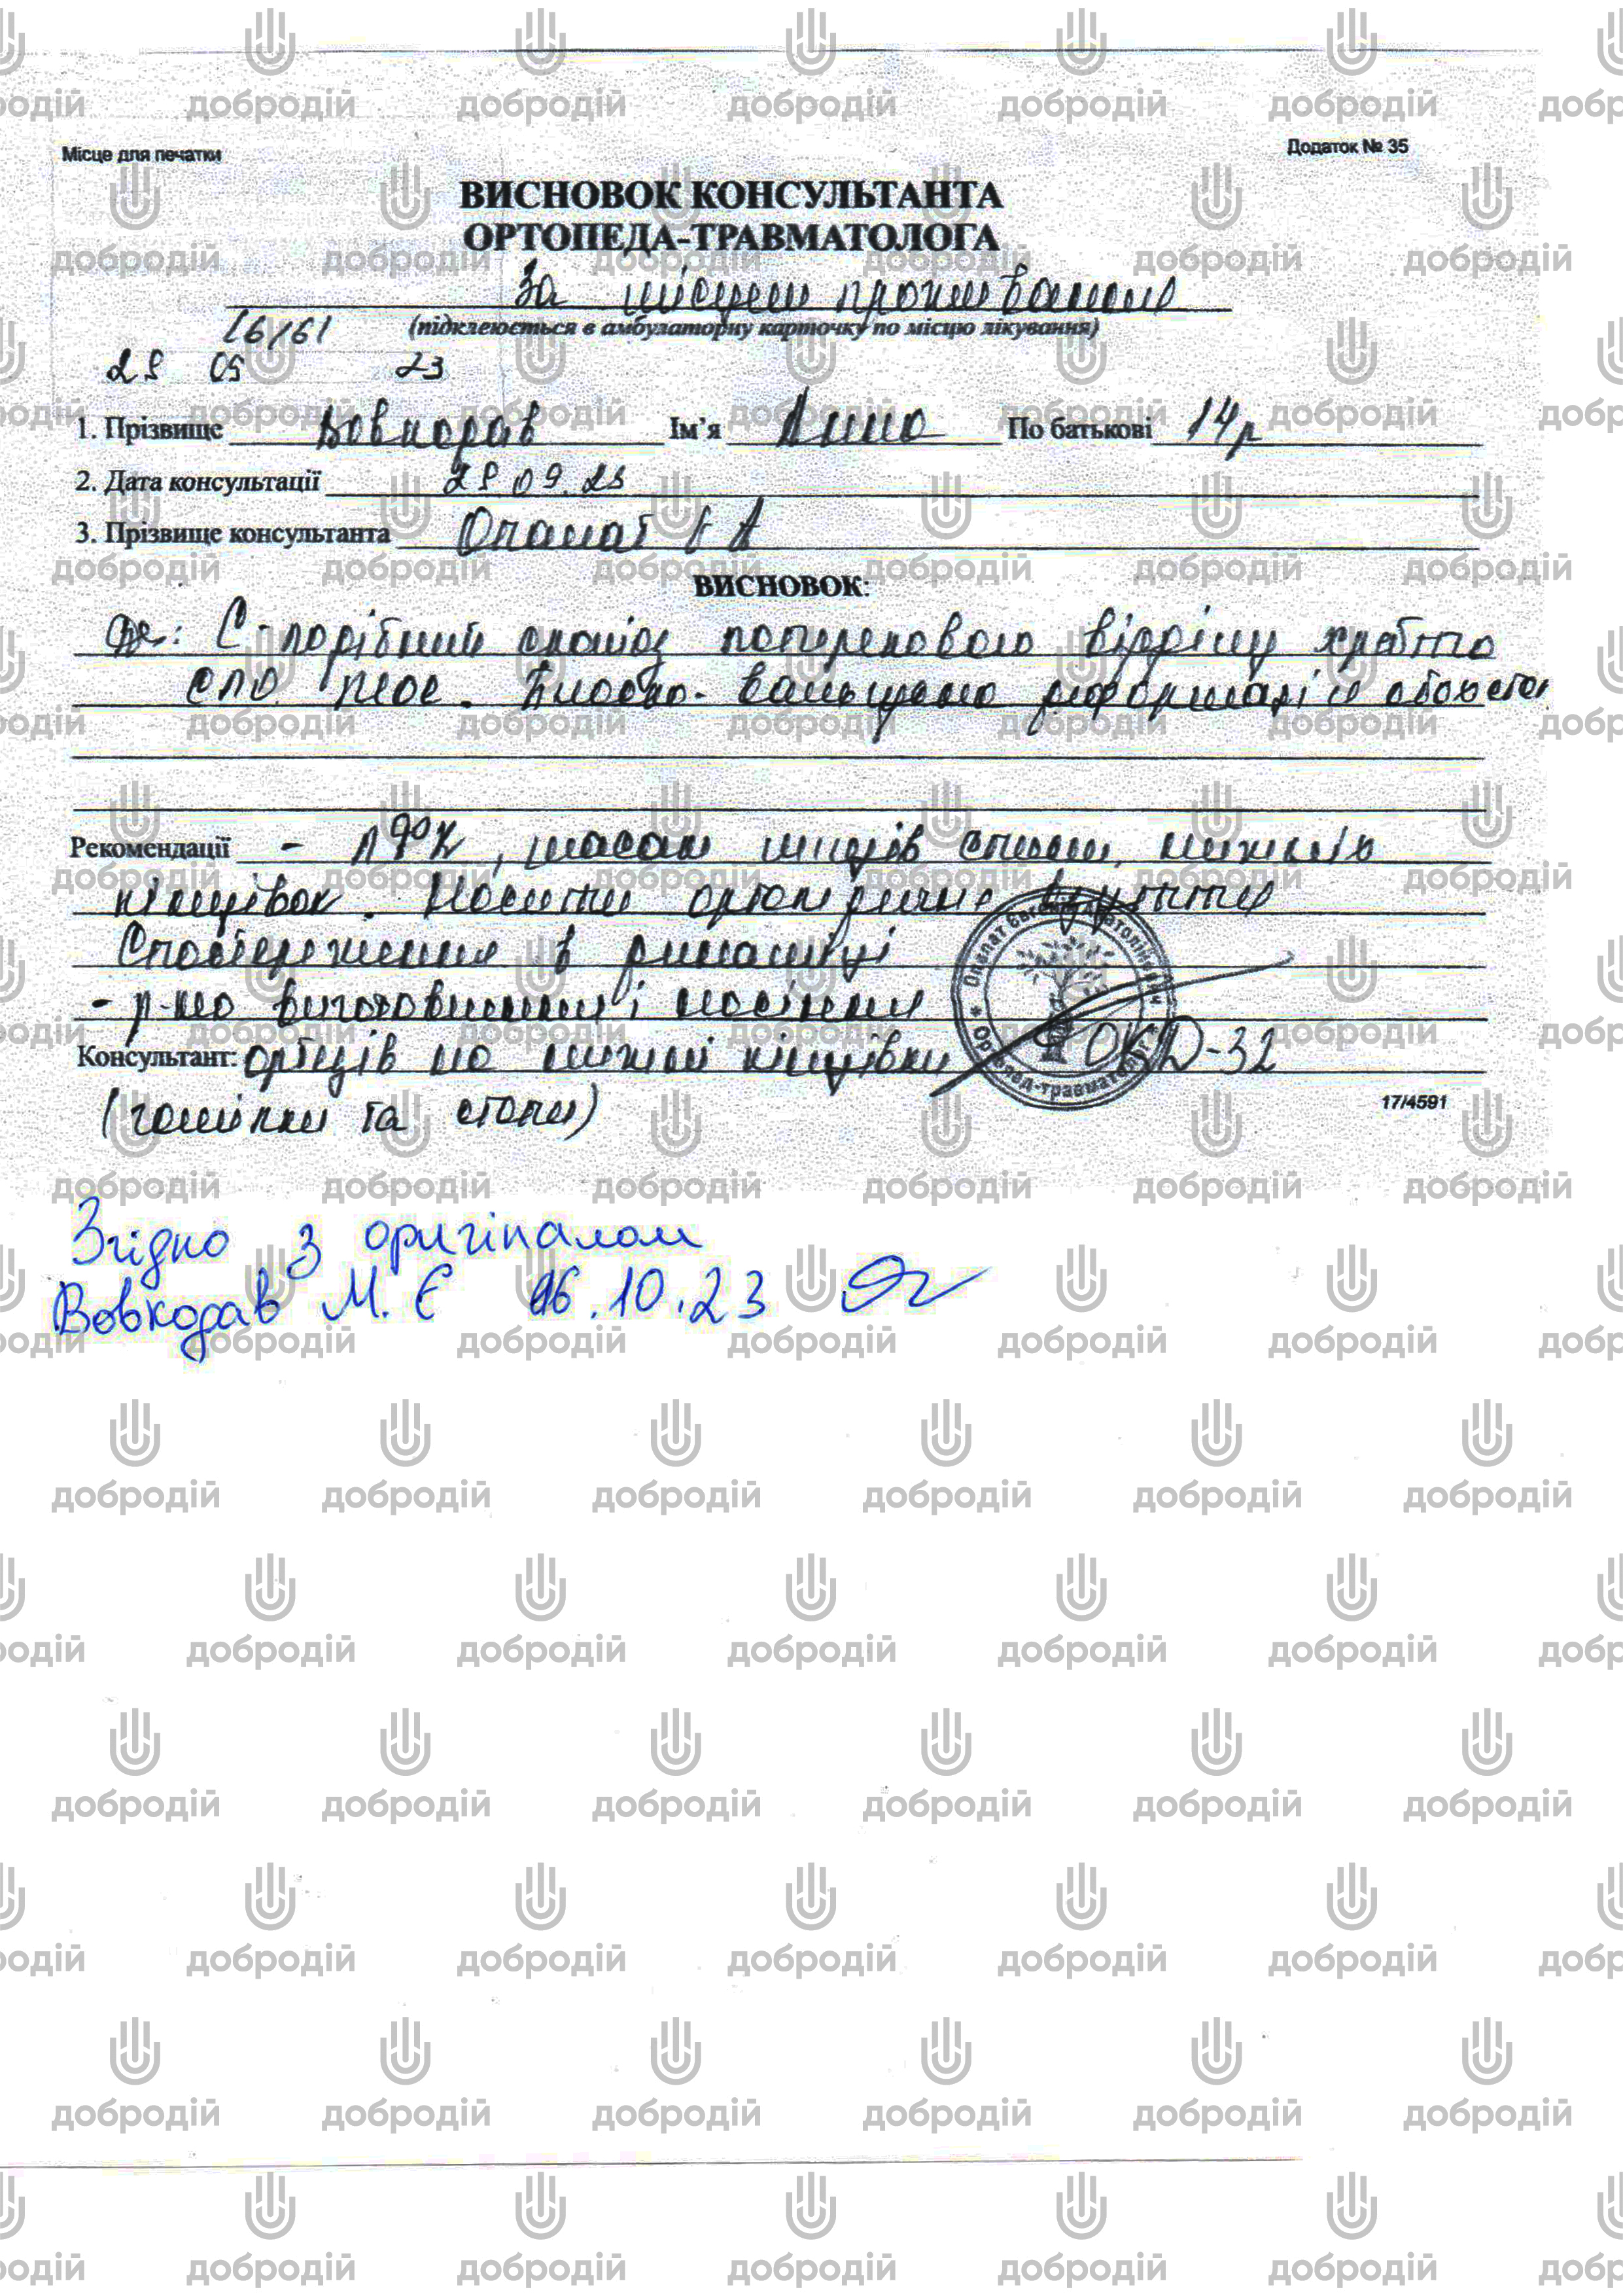 Місце для печатки
Додаток № 35
ВИСНОВОК КОНСУЛЬТАНТА
ОРТОПЕДА-ТРАВМАТОЛОГА
За місцем проживання
(підклеюється в амбулаторну карточку по місцю лікування)
1. Прізвище Вовкодав Ім'я Анна По батькові 14р
2. Дата консультації 28 09. 23
3. Прізвище консультанта Опалат Є А
ВИСНОВОК:
Ds: С-подібний сколіоз поперекового відділу хребта
Плоско-вальгусна деформація обох стоп
Рекомендації - ЛФК, масаж м'язів спини, нижніх
кінцівок. Носити ортопедичне взуття
Спостереження в динаміці
- р-но виготовлення і носіння
Консультант: ортезів на нижні кінцівки
(гомілки та стопи)
Опалат Євгеній Анатолійович * Ортопед-травматолог *
17/4591
Згідно з оригіналом
Вовкодав М. Є 16.10.23
добродій